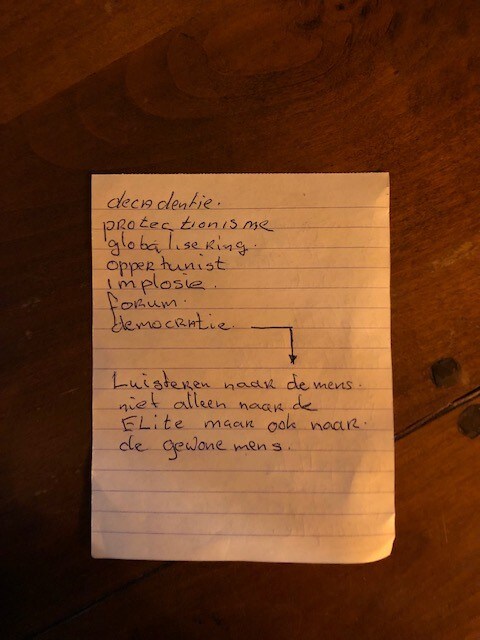 decadentie.
protectionisme
globalisering.
oppertunist
implosie.
forum.
democratie.
Luisteren naar de mens.
niet alleen naar de
ELite maar ook naar.
de gewone mens.